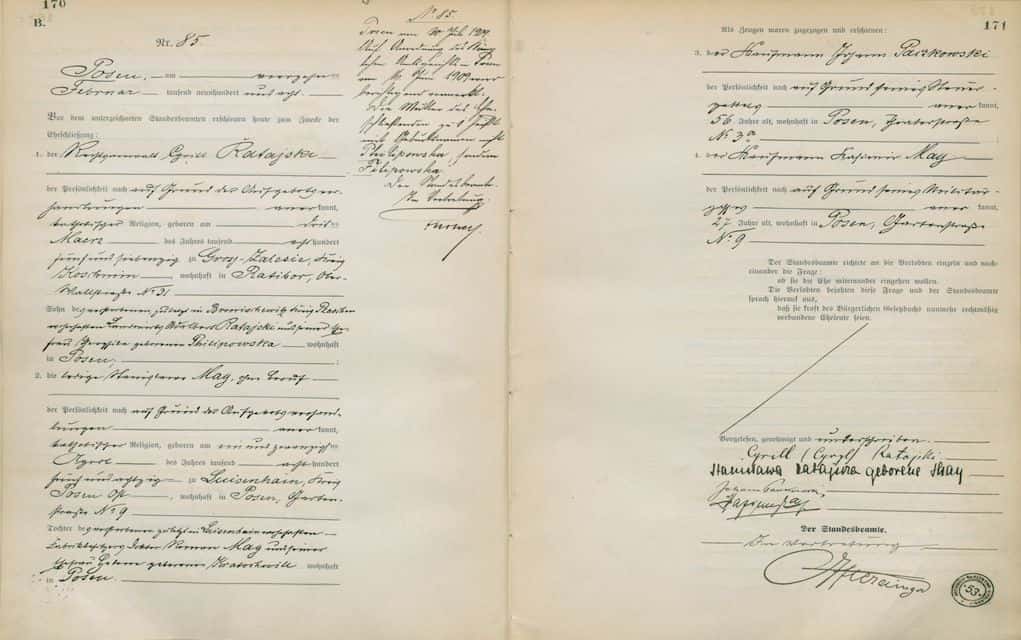 170
B.
Nr. 85.
Posen, am vierzehnten
Februar tausend neunhundert und acht.
Vor dem unterzeichneten Standesbeamten erschienen heute zum Zwecke der
Eheschließung:
1. der Rechtsanwalt Cyrill Ratajski
der Persönlichkeit nach auf Grund der Aufgebotsver-
handlungen anerkannt,
katholischer Religion, geboren am dritten
Maerz des Jahres tausend achthundert
fünf und siebenzig zu Gross-Zalesie, Kreis
Koschmin, wohnhaft in Ratibor, Ober-
Wallstraße No 31
Sohn des verstorbenen, zuletzt in
Ratajski und seiner Ehe-
frau geborenen Philipowska wohnhaft
in Posen;
2. die ledige Stanislawa Mag, ohne Beruf
der Persönlichkeit nach auf Grund der Aufgebotsverhand-
lungen anerkannt,
katholischer Religion, geboren am ein und zwanzigsten
April des Jahres tausend achthundert
fünf und achtzig zu Luisenhain, Kreis
Posen Ost, wohnhaft in Posen, Garten-
straße No 9
Tochter des verstorbenen, zuletzt in Luisenhain wohnhaften
Fabrikbesitzers, Doktor Roman Mag und seiner
Ehefrau Helene geborenen wohnhaft
in Posen.
No 85.
Posen am Juli 1909.
Auf Anordnung des König-
lichen Amtsgerichts in Posen
vom Juni 1909 wird
berichtigend vermerkt:
Die Mutter des Ehe-
schließenden zu 1 heißt
mit Geburtsnamen nicht
Philipowska, sondern
Filipowska.
Der Standesbeamte.
In Vertretung.
171
Als Zeugen waren zugezogen und erschienen:
3. der Kaufmann Johann Paczkowski
der Persönlichkeit nach auf Grund seines Steuer-
zettels anerkannt,
56 Jahre alt, wohnhaft in Posen,
No 3a
4. der Kaufmann Kasimir Mag
der Persönlichkeit nach auf Grund seines Militär-
passes anerkannt,
27 Jahre alt, wohnhaft in Posen, Gartenstraße
No 9
Der Standesbeamte richtete an die Verlobten einzeln und nach-
einander die Frage:
ob sie die Ehe miteinander eingehen wollen.
Die Verlobten bejahten diese Frage und der Standesbeamte
sprach hierauf aus,
daß sie kraft des Bürgerlichen Gesetzbuchs nunmehr rechtmäßig
verbundene Eheleute seien.
Vorgelesen, genehmigt und unterschrieben.
Cyrill (Cyryl) Ratajski
Stanisława Ratajska geborene Mag
Der Standesbeamte.
In Vertretung
53